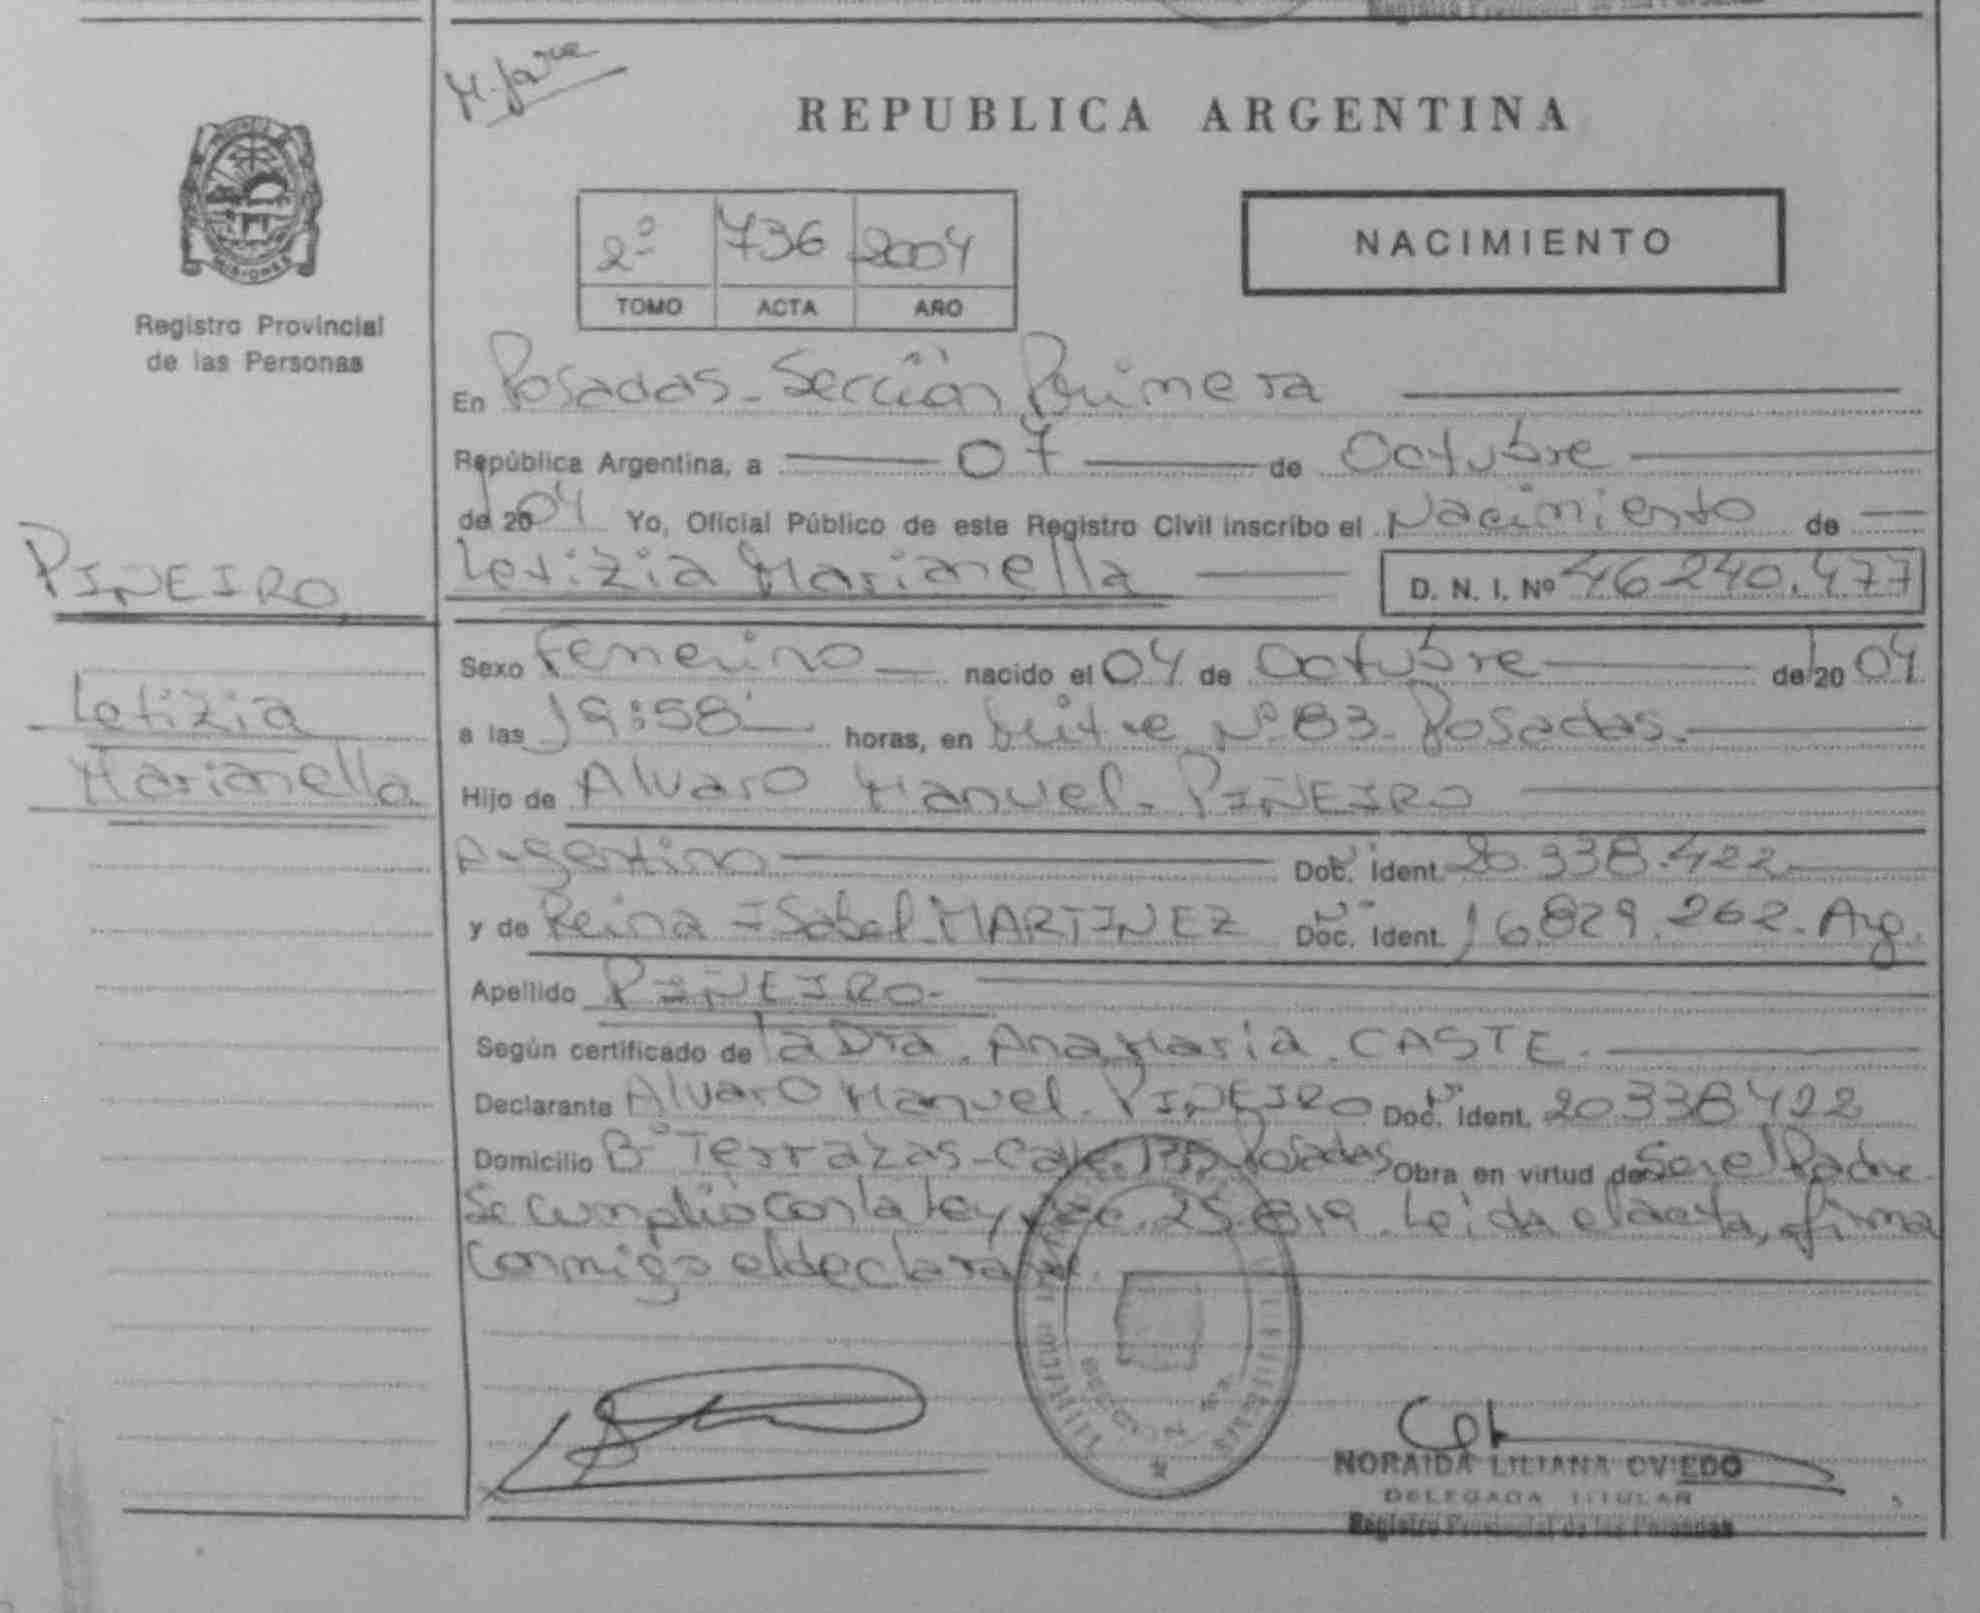 REPUBLICA ARGENTINA
MISIONES
Registro Provincial
de las Personas
2º 736 2004
TOMO ACTA AÑO
NACIMIENTO
En Posadas - Sección Primera
República Argentina, a 07 de Octubre
de 2004 Yo, Oficial Público de este Registro Civil inscribo el Nacimiento de
Letizia Marianella D. N. I. Nº 46240.477
PIÑEIRO
Letizia
Marianella
Sexo Femenino nacido el 04 de Octubre de 2004
a las 19:58 horas, en Nº 83 - Posadas.
Hijo de Alvaro Manuel - PIÑEIRO
Argentino Doc. Ident. 20.338.422
y de Reina Isabel MARTINEZ Doc. Ident. 16829.262 - Arg.
Apellido PIÑEIRO -
Según certificado de la Dra. Ana Maria. CASTE.
Declarante Alvaro Manuel - PIÑEIRO Doc. Ident. 20338422
Domicilio Bº Terrazas - Calle Posadas Obra en virtud de Ser el Padre
Se cumplió con la Ley 25.819. Leida el acta, firma
conmigo el declarante.
NORAIDA LILIANA OVIEDO
DELEGADA TITULAR
Registro Provincial de las Personas